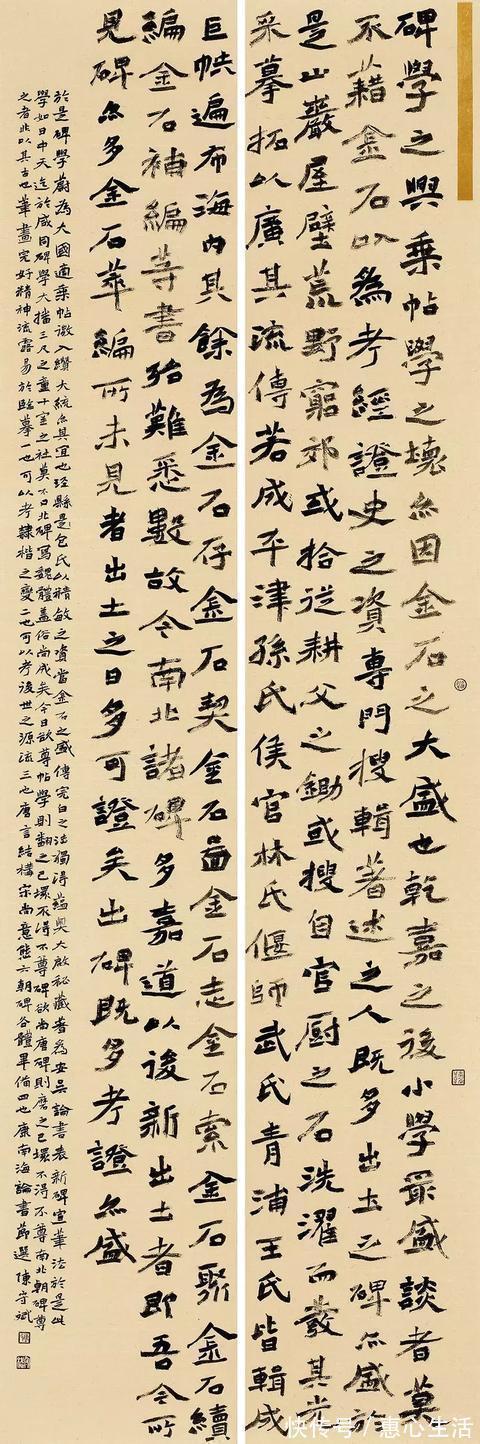 碑學之興乘帖學之壞亦因金石之大盛也乾嘉之後小學最盛談者莫
不藉金石以為考經證史之資專門搜輯著述之人既多出土之碑亦盛於
是山巖屋壁荒野窮郊或拾從耕父之鋤或搜自官廚之石洗濯而發其光
采摹拓以廣其流傳若成平津孫氏侯官林氏偃師武氏青浦王氏皆輯成
巨帙遍布海內其餘為金石存金石契金石圖金石志金石索金石聚金石續
編金石補編等書殆難悉數故今南北諸碑多嘉道以後新出土者即吾今所
見碑亦多金石萃編所未見者出土之日多可證矣出碑既多考證亦盛
於是碑學蔚為大國適乘帖微入纘大統亦其宜也涇縣是包氏以精敏之資當金石之盛傳完白之法獨得蘊奧大啟秘藏著為安吳論書表新碑宣筆法於是此
學如日中天迄於咸同碑學大播三尺之童十室之社莫不口北碑寫魏體蓋俗尚成矣今日欲尊帖學則翻之已壞不得不尊碑欲尚唐碑則磨之已壞不得不尊南北朝碑尊
之者非以其古也筆畫完好精神流露易於臨摹一也可以考隸楷之變二也可以考後世之源流三也唐言結構宋尚意態六朝碑各體畢備四也康南海論書節選陳守斌
快传号/惠心生活